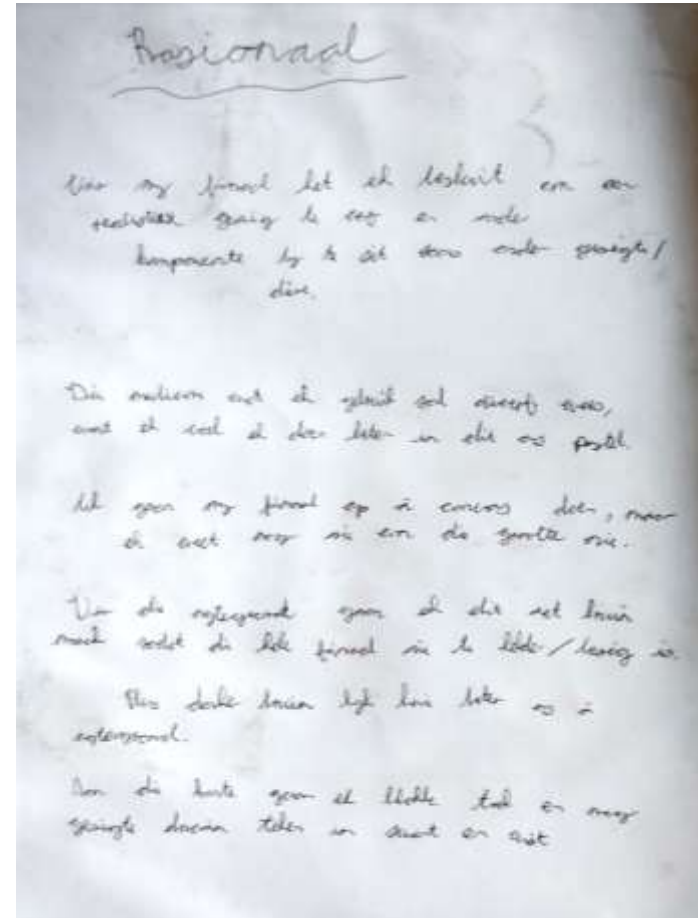 Rasionaal
Vir my finaal het ek besluit om een
realistiese gesig te en ander
komponente by te sit soos ander gesigte/
diere.
Die medium wat ek gebruik sal wees,
want ek voel ek doen beter in dit as pastel.
Ek gaan my finaal op 'n canvas doen, maar
ek weet nog nie om die grootte nie.
Vir die agtergrond gaan ek dit net bruin
maak sodat die hele finaal nie te / besig is.
Plus donker bruin lyk baie beter as 'n
agtergrond.
Aan die kante gaan ek en nog
gesigte daarin teken in swart en wit